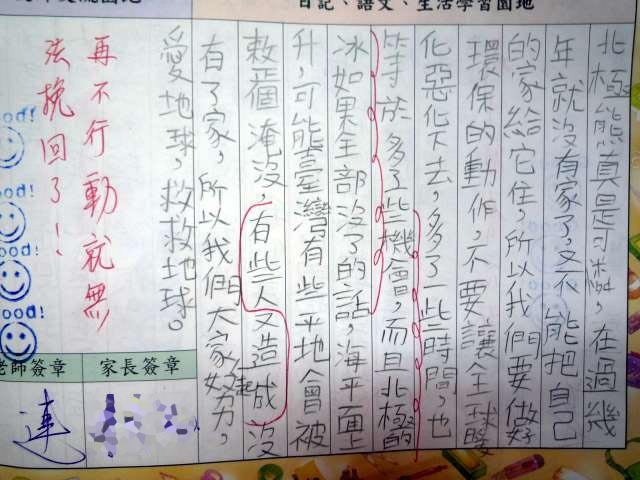 日記、語文、生活學習園地
北極熊真是可憐，在過幾
年就沒有家了，又不能把自己
的家給它住，所以我們要做好
環保的動作，不要讓全球暖
化惡化下去，多了一些時間，也
等於多了些機會，而且北極的
冰如果全部沒了的話，海平面上
升，可能臺灣有些平地會被
整個淹沒，有些人又造成沒
有了家，所以我們大家一起努力，
愛地球，救救地球。
再不行動就無
法挽回了！
ood!
ood!
ood!
ood!
家長簽章
老師簽章
連